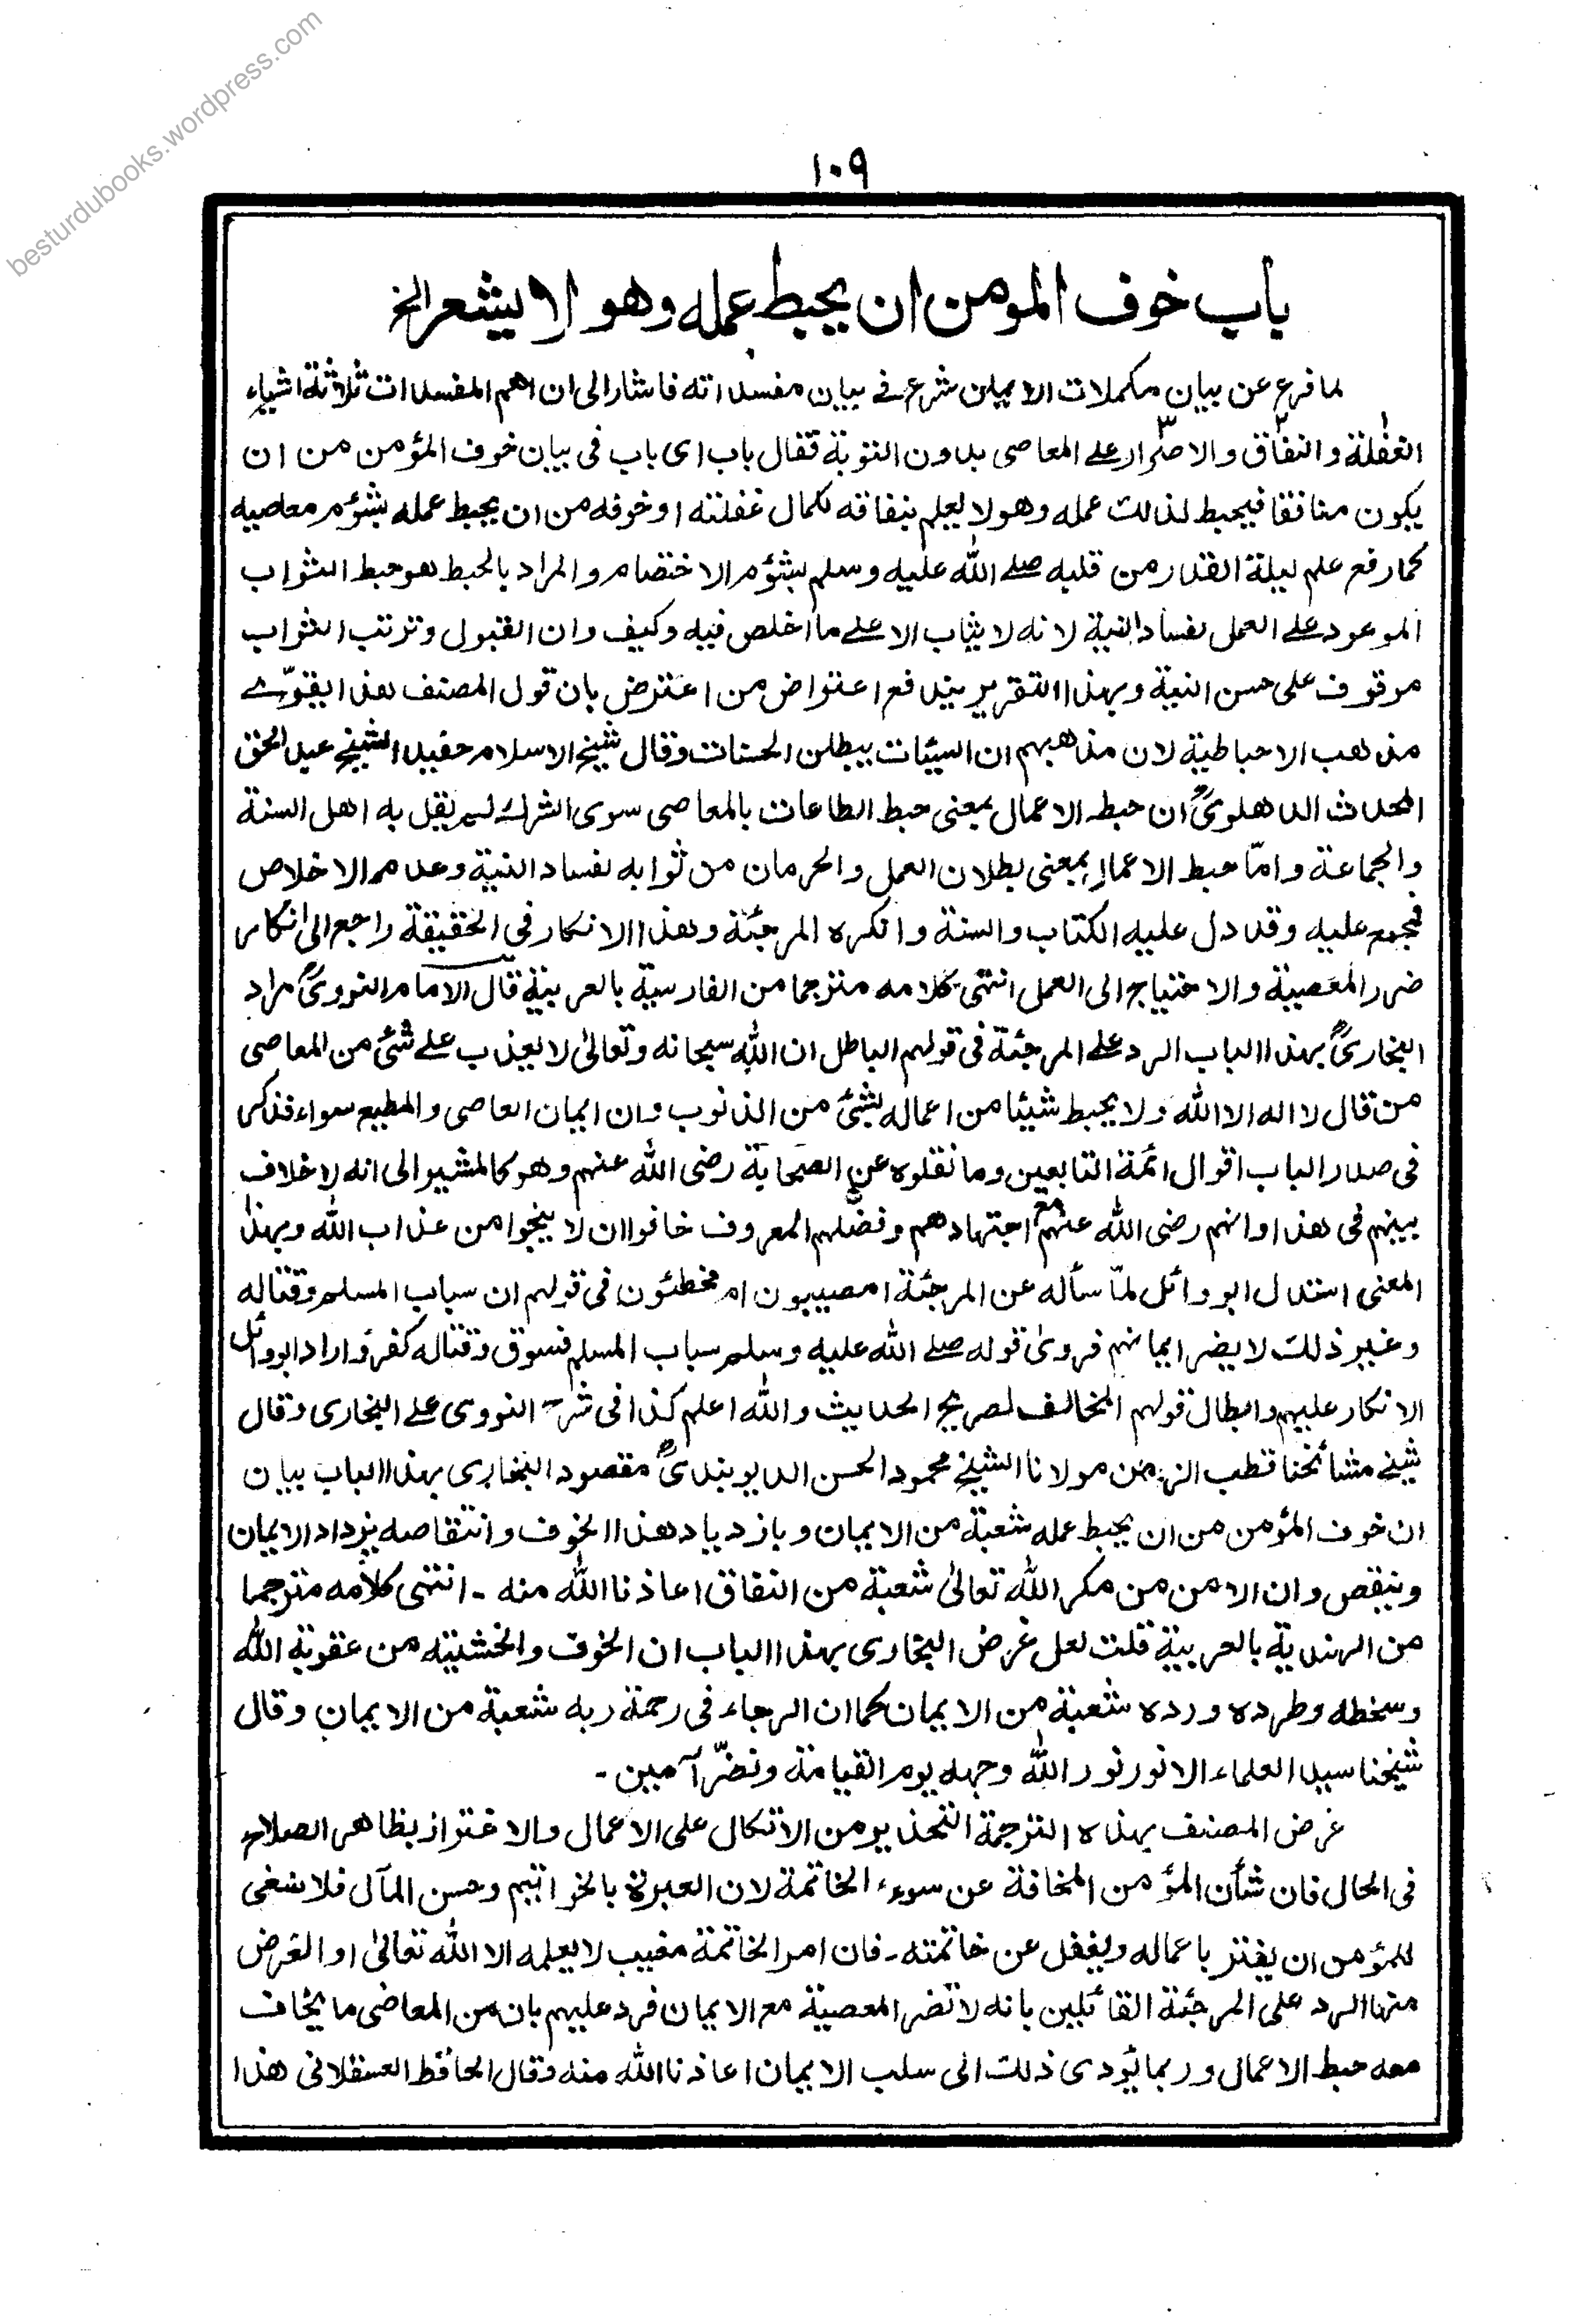 besturdubooks.wordpress.com
١٠٩
باب خوف المومن ان يحبط عمله وهو لا يشعر الخ
لما فرغ عن بيان مكملات الايمان شرع فے بيان مفسداته فاشار الى ان اهم المفسدات ثلاثة اشياء
الغفلة والنفاق والاصرار علے المعاصى بدون التوبة فقال باب اى باب فى بيان خوف المؤمن من ان
يكون منافقا فيحبط لذلك عمله وهو لا يعلم بنفاقه لكمال غفلته او خوفه من ان يحبط عمله بشؤم معاصيه
كما رفع علم ليلة القدر من قلبه صلے الله عليه وسلم بشؤم الاختصام والمراد بالحبط هو حبط الثواب
الموعود علے العمل لفساد النية لانه لا يثاب الا علے ما اخلص فيه وكيف وان القبول وترتب الثواب
موقوف على حسن النية وبهذا التقرير يندفع اعتراض من اعترض بان قول المصنف هذا يقوّے
مذهب الاحباطية لان مذاهبهم ان السيئات يبطلن الحسنات وقال شيخ الاسلام حفيد الشيخ عبد الحق
المحدث الدهلوىؒ ان حبط الاعمال بمعنى حبط الطاعات بالمعاصى سوى الشرك لم يقل به اهل السنة
والجماعة وامّا حبط الاعمال بمعنى بطلان العمل والحرمان من ثوابه لفساد النية وعدم الاخلاص
فمجمع عليه وقد دل عليه الكتاب والسنة وانكره المرجئة وهذا الانكار فى الحقيقة راجع الى انكار
ضرر المعصية والاحتياج الى العمل انتهى كلامه مترجما من الفارسية بالعربية قال الامام النووىؒ مراد
البخارىؒ بهذا الباب الرد علے المرجئة فى قولهم الباطل ان الله سبحانه وتعالىٰ لا يعذب علے شئ من المعاصى
من قال لا اله الا الله ولا يحبط شيئا من اعماله بشئ من الذنوب وان ايمان العاصى والمطيع سواء فذكر
فى صدر الباب اقوال ائمة التابعين وما نقلوه عن الصحابة رضى الله عنهم وهو كالمشير الى انه لا خلاف
بينهم فى هذا وانهم رضى الله عنهم مع اجتهادهم وفضلهم المعروف خافوا ان لا ينجوا من عذاب الله وبهذا
المعنى استدل ابو وائل لمّا سأله عن المرجئة امصيبون ام مخطئون فى قولهم ان سباب المسلم وقتاله
وغير ذلك لا يضر ايمانهم فروىٰ قوله صلے الله عليه وسلم سباب المسلم فسوق وقتاله كفر واراد ابو وائل
الانكار عليهم وابطال قولهم المخالف لصريح الحديث والله اعلم كذا فى شرح النووى علے البخارى وقال
شيخ مشائخنا قطب الزمن مولانا الشيخ محمود الحسن الديوبندىؒ مقصود البخارى بهذا الباب بيان
ان خوف المؤمن من ان يحبط عمله شعبة من الايمان وبازدياد هذا الخوف وانتقاصه يزداد الايمان
وينقص وان الامن من مكر الله تعالىٰ شعبة من النفاق اعاذنا الله منه ۔ انتهى كلامه مترجما
من الهندية بالعربية قلت لعل غرض البخارى بهذا الباب ان الخوف والخشية من عقوبة الله
وسخطه وطرده ورده شعبة من الايمان كما ان الرجاء فى رحمة ربه شعبة من الايمان وقال
شيخنا سيد العلماء الانور نور الله وجهه يوم القيامة ونضّر آمين ۔
غرض المصنف بهذه الترجمة التحذير من الاتكال على الاعمال والاغترار بظاهر الصلاح
فى الحال فان شأن المؤمن المخافة عن سوء الخاتمة لان العبرة بالخواتيم وحسن المآل فلا ينبغى
للمؤمن ان يغتر باعماله ويغفل عن خاتمته ۔ فان امر الخاتمة مغيب لا يعلمه الا الله تعالىٰ او الغرض
منها الرد على المرجئة القائلين بانه لا تضر المعصية مع الايمان فرد عليهم بان من المعاصى ما يخاف
معه حبط الاعمال وربما يؤدى ذلك الى سلب الايمان اعاذنا الله منه وقال الحافظ العسقلانى هذا